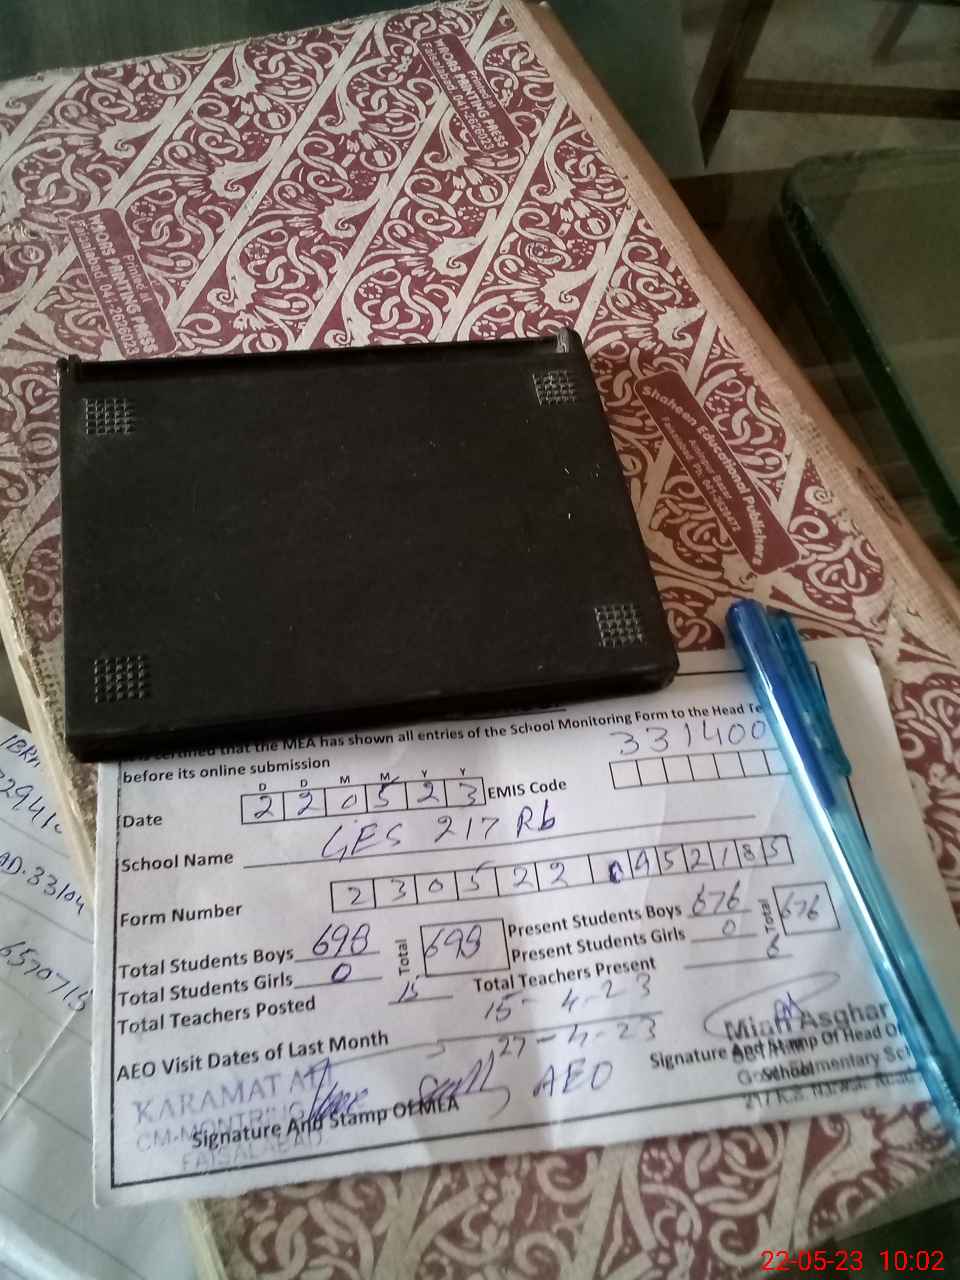 Printed at
WAQAS PAINTING PRESS
Faisalabad 041-2626023
Printed at
WAQAS PAINTING PRESS
Faisalabad 041-2626023
Shaheen Educational Publishers
certified that the MEA has shown all entries of the School Monitoring Form to the Head Te
before its online submission
331400
D D M M Y Y
Date 2 2 0 5 2 3 EMIS Code
School Name GES 217 Rb
Form Number 2 3 0 5 2 2 0 9 5 2 1 8 5
Total Students Boys 698 Total 698 Present Students Boys 676 Total 676
Total Students Girls 0 Present Students Girls 0
Total Teachers Posted 15 Total Teachers Present 6
15-4-23
AEO Visit Dates of Last Month 27-4-23
AEO
Mian Asghar
Signature And Stamp Of Head Of
School
KARAMAT
CM-MONTRING
Signature And Stamp Of MEA
FAISALABAD
22-05-23 10:02